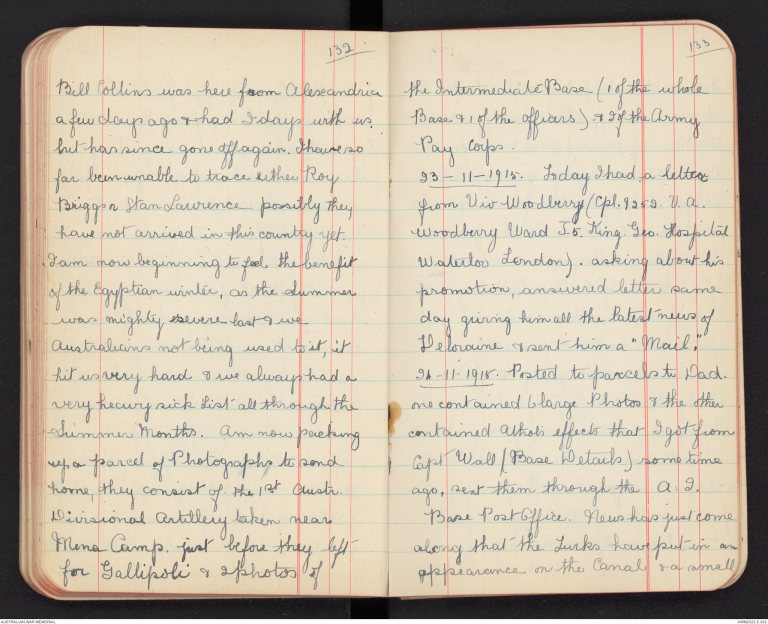 132.
Bill Collins was here from Alexandria
a few days ago & had 2 days with us
but has since gone off again. I have so
far been unable to trace either Roy
Briggs or Stan Lawrence possibly they
have not arrived in this country yet.
I am now beginning to feel the benefit
of the Egyptian winter, as the summer
was mighty severe last & we
Australians not being used to it, it
hit us very hard & we always had a
very heavy sick list all through the
Summer Months. Am now packing
up a parcel of Photographs to send
home, they consist of the 1st Austr.
Divisional Artillery taken near
Mena Camp. just before they left
for Gallipoli & 2 photos of
133
the Intermediate Base (1 of the whole
Base & 1 of the officers) & 2 of the Army
Pay Corps.
23-11-1915. Today I had a letter
from Viv Woodberry (Cpl. 9252. V. A.
Woodberry Ward J.5. King. Geo. Hospital
Waterloo London). asking about his
promotion, answered letter same
day giving him all the latest news of
Deloraine & sent him a "Mail".
24-11-1915. Posted to parcels to Dad.
one contained 6 large Photos & the other
contained Athol's effects that I got from
Capt Wall (Base Details) some time
ago, sent them through the A. I.
Base Post Office. News has just come
along that the Turks have put in an
appearance on the Canal & a small
AUSTRALIAN WAR MEMORIAL